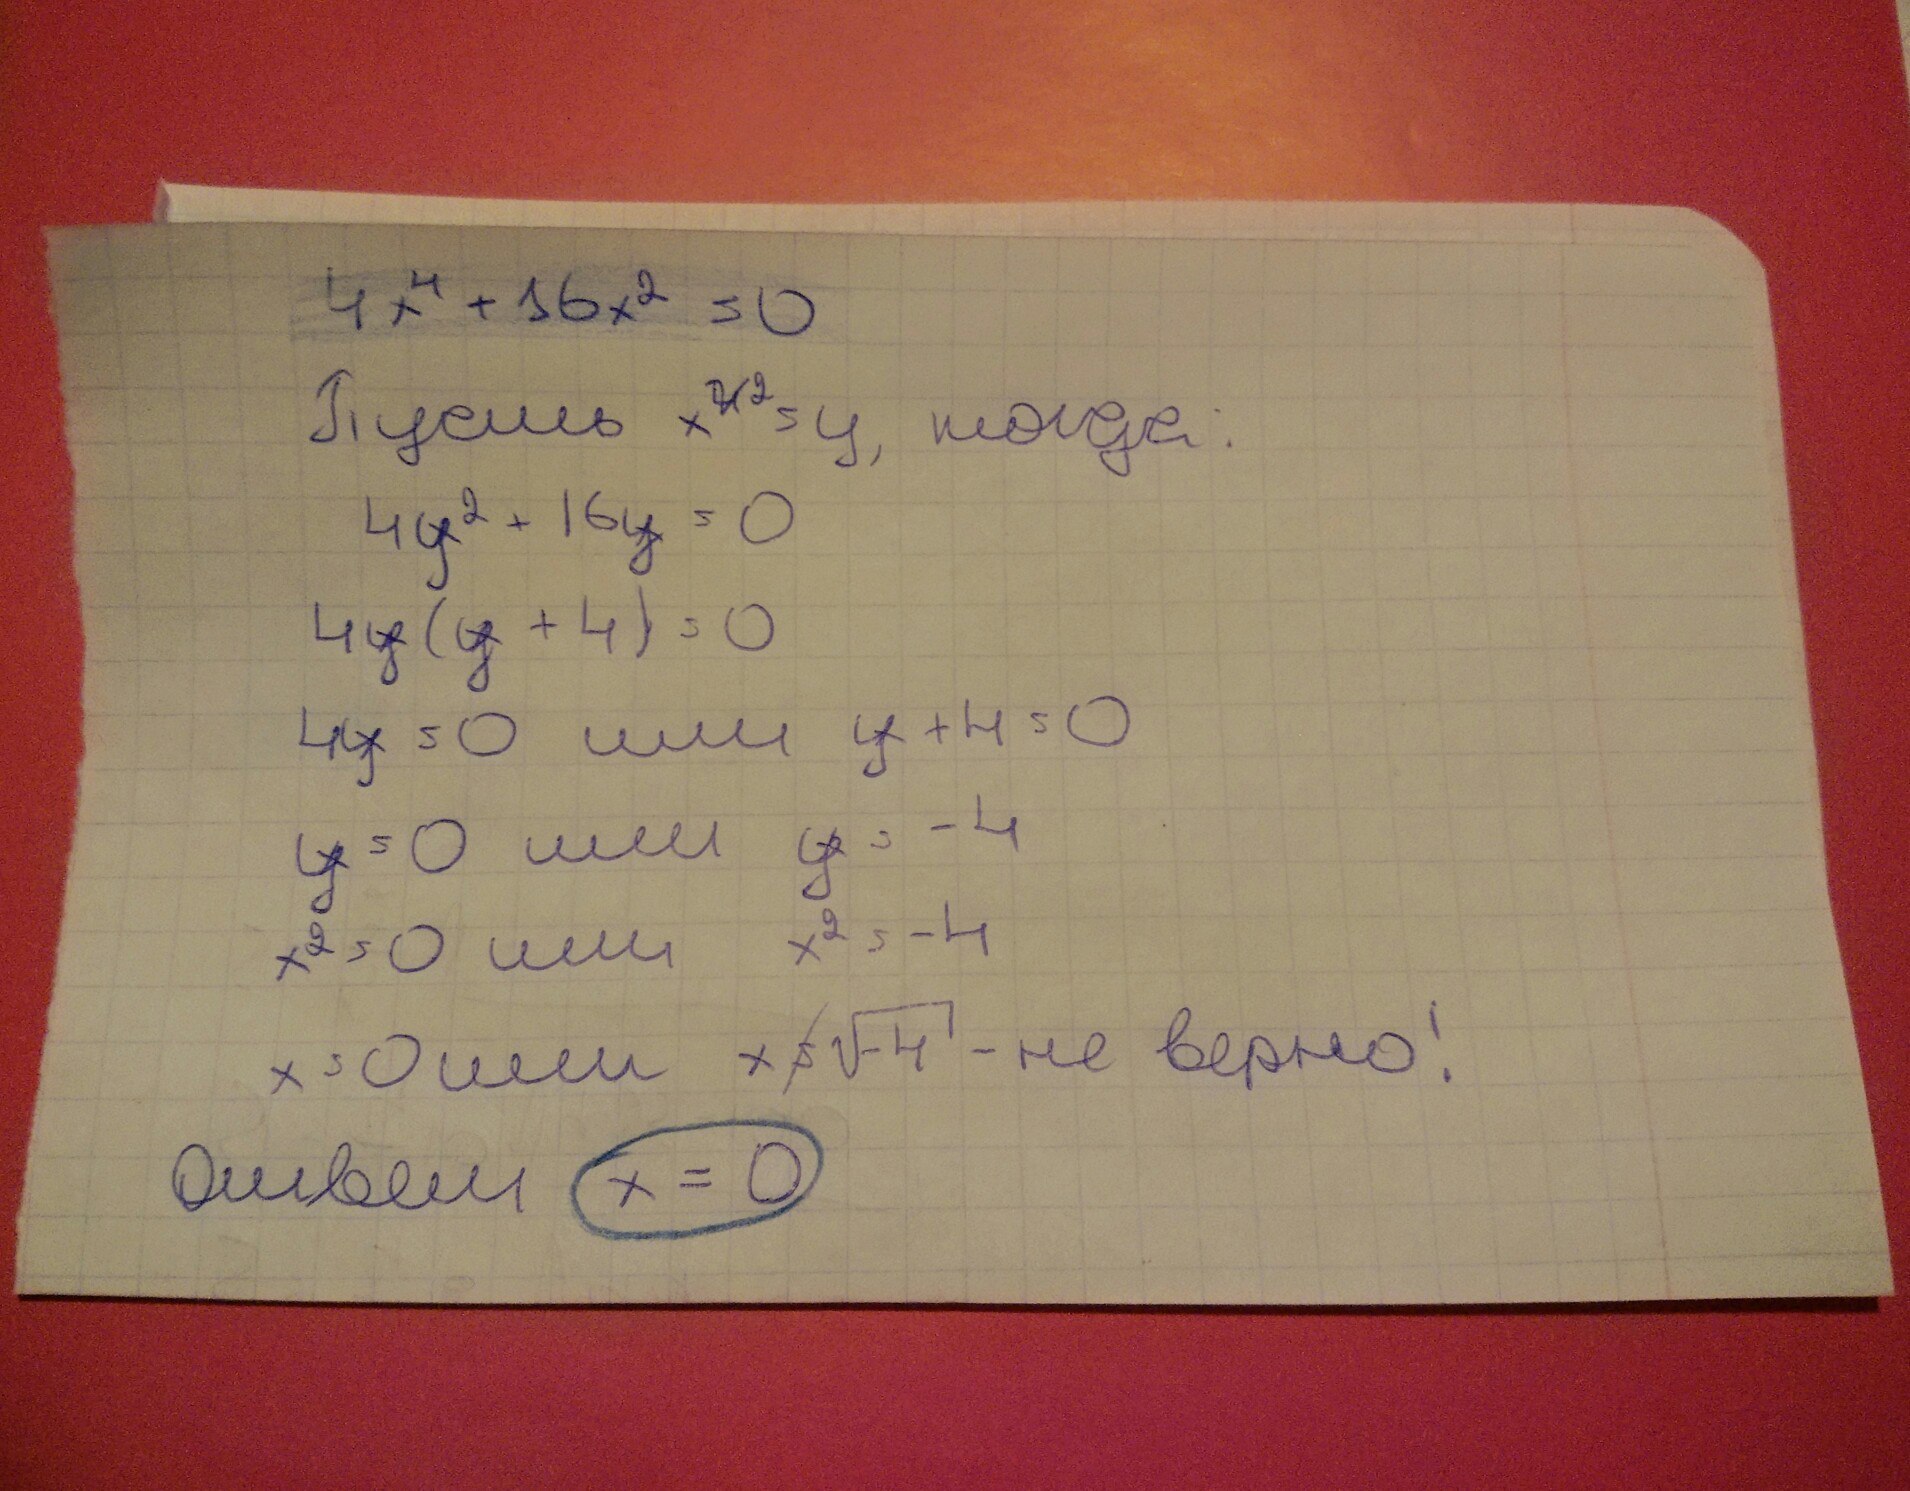 4x⁴ + 16x² = 0
Пусть x² = y, тогда:
4y² + 16y = 0
4y(y + 4) = 0
4y = 0 или y + 4 = 0
y = 0 или y = -4
x² = 0 или x² = -4
x = 0 или x ≠ √-4 - не верно!
Ответ x = 0